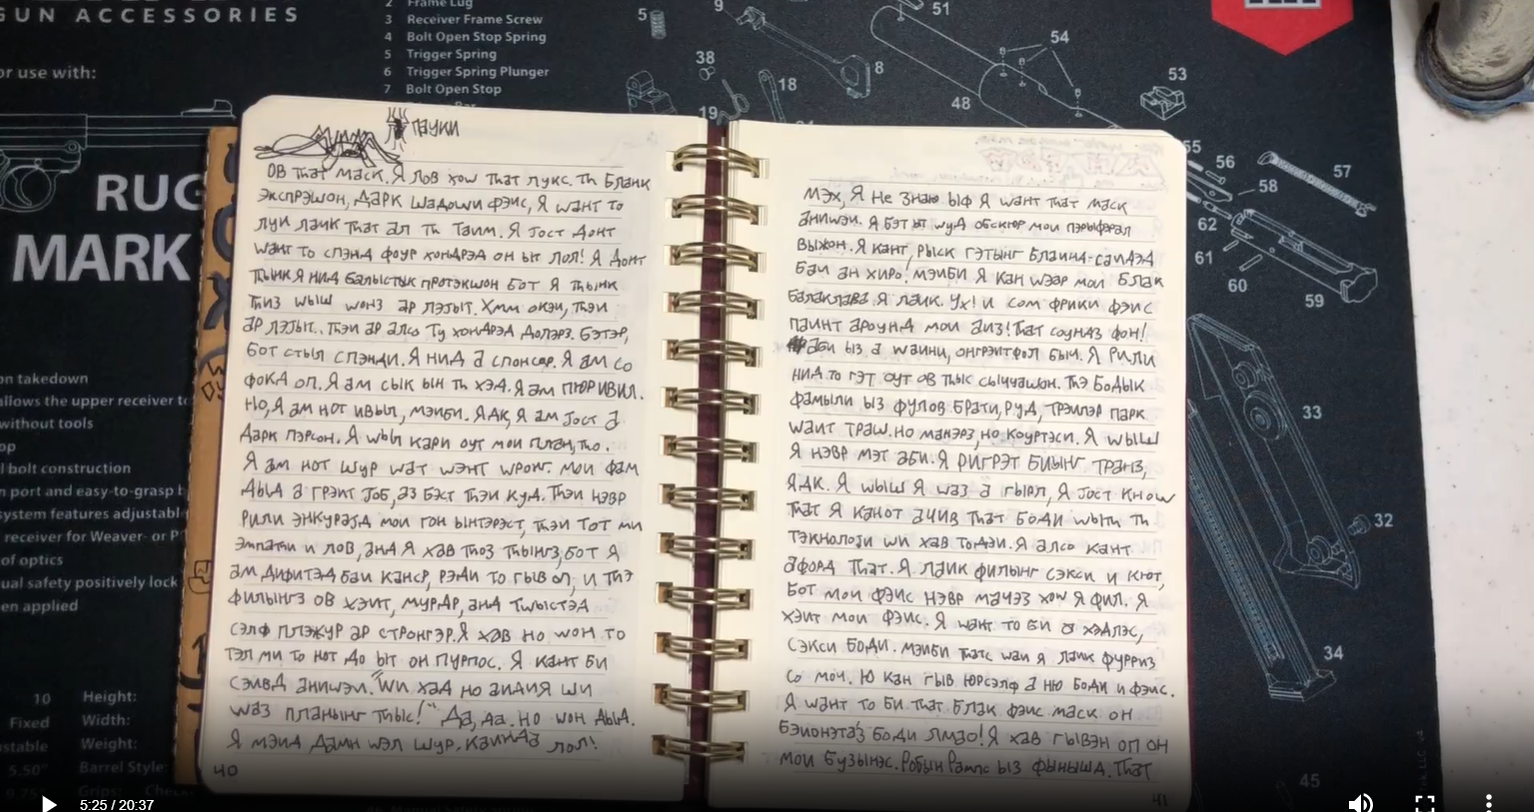 GUN ACCESSORIES
or use with:
2 Frame Lug
3 Receiver Frame Screw
4 Bolt Open Stop Spring
5 Trigger Spring
6 Trigger Spring Plunger
7 Bolt Open Stop
RUG
MARK
on takedown
allows the upper receiver to
without tools
l bolt construction
n port and easy-to-grasp
system features adjustabl
receiver for Weaver- or P
of optics
ual safety positively lock
en applied
10 Height:
Fixed Width:
Weight:
5.50" Barrel Style:
Grips:
5
9
8
38
18
19
51
54
48
53
55
56
57
58
62
61
60
59
33
32
34
45
пауки
ов that маск. Я лов хоw that лукс. Th бланк
экспрэшон, дарк шадоwи фэис, Я wант то
лук лаик that ал th таим. Я јост донт
wант то спэнд фоур хондрэд он ыт лол! Я донт
thынк Я нид балыстык протэкшон бот Я thынк
thиз wыш wонз ар лэјыт. Хмм окэи, thэи
ар лэјыт.. thэи ар алсо ту хондрэд долэрз. Бэтэр,
бот стыл спэнди. Я нид а спонсор. Я ам со
фокд оп. Я ам сык ын th хэд. Я ам пюр ивил.
Но, Я ам нот ивыл, мэиби. ЯДК, Я ам јост а
дарк пэрсон. Я wыл кари оут мои план, тho.
Я ам нот шур wат wэнт wронг. мои фам
дыд а грэит јоб, аз бэст thэи куд. Thэи нэвр
рили энкурэјд мои гон ынтэрэст, thэи тот ми
эмпаthи и лов, анд Я хав thоз thынгз, бот Я
ам дифитэд баи канср, рэди то гыв оп, и thэ
филынгз ов хэит, мурдр, анд тwыстэд
сэлф плэжур ар стронгэр. Я хав но wон то
тэл ми то нот до ыт он пурпос. Я кант би
сэивд аниwэи. "Wи хад но аидия ши
wаз планынг thыс!" Да, да. Но wон дыд.
Я мэид дамн wэл шур. Каинда лол!
40
мэх, Я не знаю ыф Я wант that маск
аниwэи. Я бэт ыт wуд обскюр мои пэрыфэрал
выжон. Я кант рыск гэтынг блаинд-саидэд
баи ан хиро! мэиби Я кан wэар мои блак
балаклава Я лаик. Ух! и сом фрики фэис
паинт ароунд мои аиз! That соундз фон!
аби ыз а wаини, онгрэитфол быч. Я рили
нид то гэт оут ов thыс сычуашон. Thэ бодык
фамыли ыз фул ов брати, руд, трэилэр парк
wаит траш. но манэрз, но коуртэси. Я wыш
Я нэвр мэт аби. Я ригрэт биынг транз,
ЯДК. Я wыш Я wаз а гырл, Я јост кноw
that Я канот ачив that боди wыth th
тэкнолоји wи хав тодэи. Я алсо кант
афорд that. Я лаик филынг сэкси и кют,
бот мои фэис нэвр мачэз хоw Я фил. Я
хэит мои фэис. Я wант то би а хэдлэс,
сэкси боди. мэиби thатс wаи Я лаик фурриз
со моч. Ю кан гыв юрсэлф а ню боди и фэис.
Я wант то би that блак фэис маск он
бэионэта'з боди лмао! Я хав гывэн оп он
мои бузынэс. ыз фынышд. That
41
5:25 / 20:37